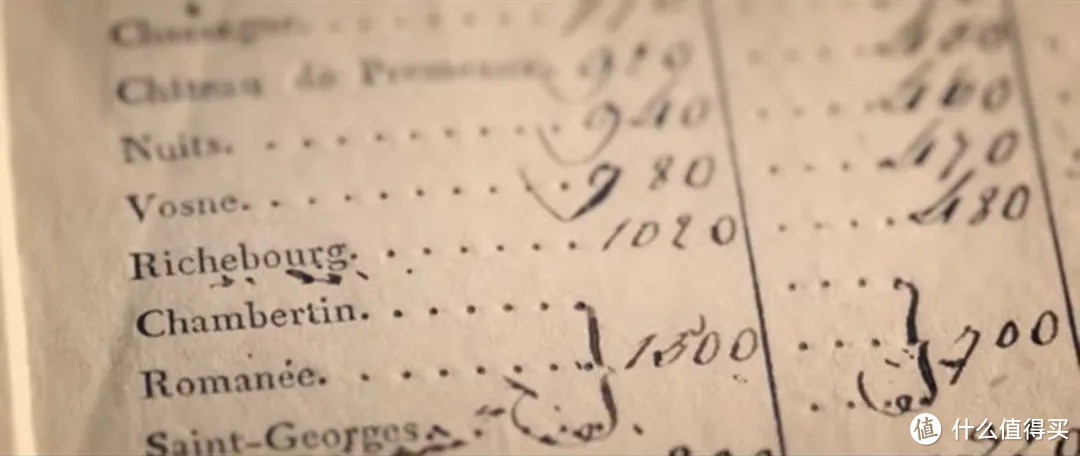 Château de Premeaux. 920 400
Nuits. 940 460
Vosne. 980 470
Richebourg. 1020 480
Chambertin.
Romanée. 1500 700
Saint-Georges
值 什么值得买